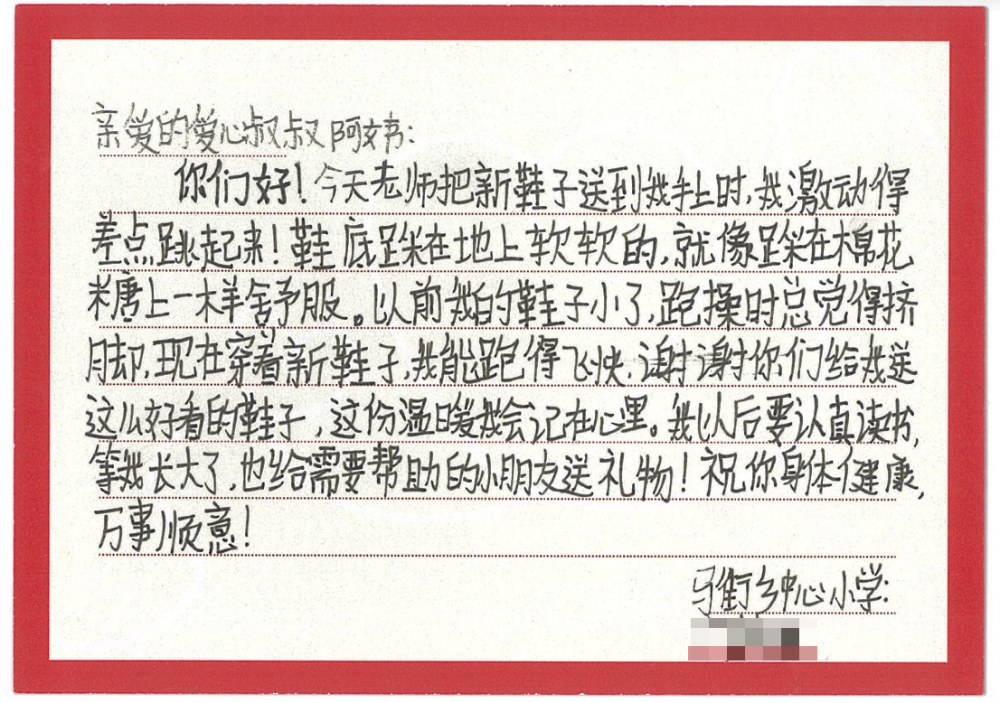 亲爱的爱心叔叔阿姨:
你们好!今天老师把新鞋子送到我手上时,我激动得
差点跳起来!鞋底踩在地上软软的,就像踩在棉花
糖上一样舒服。以前我的鞋子小了,跑操时总觉得挤
脚,现在穿着新鞋子,我能跑得飞快.谢谢你们给我送
这么好看的鞋子,这份温暖我会记在心里。我以后要认真读书,
等我长大了,也给需要帮助的小朋友送礼物!祝你身体健康,
万事顺意!
马街乡中心小学: